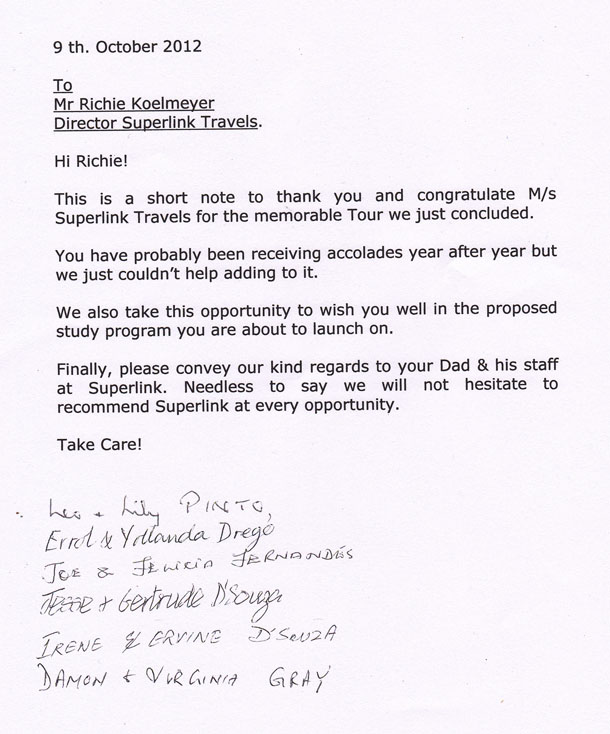 9 th. October 2012
To
Mr Richie Koelmeyer
Director Superlink Travels.
Hi Richie!
This is a short note to thank you and congratulate M/s
Superlink Travels for the memorable Tour we just concluded.
You have probably been receiving accolades year after year but
we just couldn't help adding to it.
We also take this opportunity to wish you well in the proposed
study program you are about to launch on.
Finally, please convey our kind regards to your Dad & his staff
at Superlink. Needless to say we will not hesitate to
recommend Superlink at every opportunity.
Take Care!
Leo + Lily PINTO,
Errol & Yollanda Drego
JOE & FELICIA FERNANDES
+ Gertrude D'Souza
IRENE & ERVINE D'SOUZA
DAMON + VIRGINIA GRAY